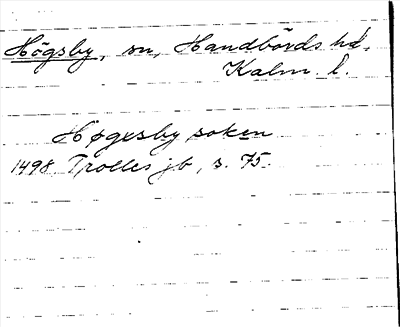 Högsby, sn, Handbörds hd.
Kalm. l.
Høgxsby soken
1498 Trolles jb, s. 75.